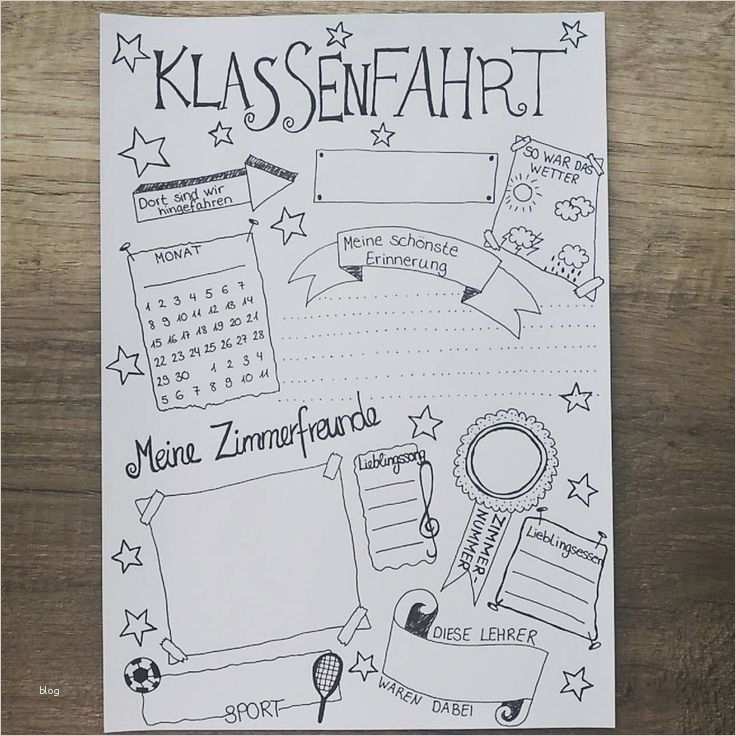 KLASSENFAHRT
Dort sind wir
hingefahren
SO WAR DAS
WETTER
Meine schönste
Erinnerung
MONAT
1 2 3 4 5 6 7
8 9 10 11 12 13 14
15 16 17 18 19 20 21
22 23 24 25 26 27 28
29 30 1 2 3 4
5 6 7 8 9 10 11
Meine Zimmerfreunde
Lieblingssong
ZIMMER-
NUMMER
Lieblingsessen
DIESE LEHRER
WAREN DABEI
SPORT
blog